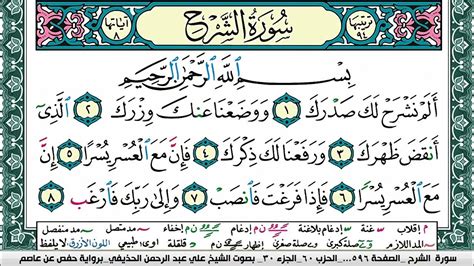 ترتيبها ٩٤ سُورَةُ الشَّرْحِ آياتها ٨
بِسْمِ ٱللَّهِ ٱلرَّحْمَٰنِ ٱلرَّحِيمِ
أَلَمْ نَشْرَحْ لَكَ صَدْرَكَ ١ وَوَضَعْنَا عَنكَ وِزْرَكَ ٢ ٱلَّذِىٓ
أَنقَضَ ظَهْرَكَ ٣ وَرَفَعْنَا لَكَ ذِكْرَكَ ٤ فَإِنَّ مَعَ ٱلْعُسْرِ يُسْرًا ٥ إِنَّ
مَعَ ٱلْعُسْرِ يُسْرًا ٦ فَإِذَا فَرَغْتَ فَٱنصَبْ ٧ وَإِلَىٰ رَبِّكَ فَٱرْغَب ٨
م إقلاب غنة إدغام بلاغنة ن م إدغام ن م إخفاء مد متصل مد منفصل
المد اللازم صلة كبرى صلة صغرى ن م إظهار قلقلة أوى طبيعي اللون الأزرق لايلفظ
سورة الشرح _الصفحة ٥٩٦... الحزب ٦٠_ الجزء ٣٠_ بصوت الشيخ علي عبد الرحمن الحذيفي_ برواية حفص عن عاصم